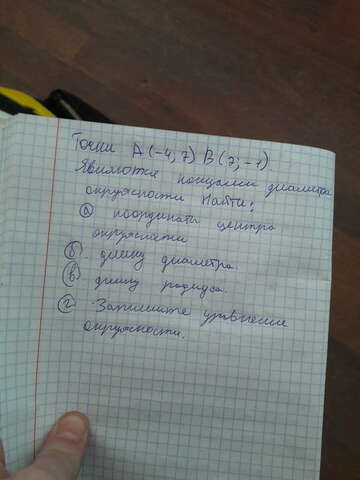 Точки A (-4, 7) B (7; -1).
Являются концами диаметра
окружности Найти:
а) координаты центра
окружности
б. длину диаметра
в. длину радиуса.
г) Запишите уравнение
окружности.